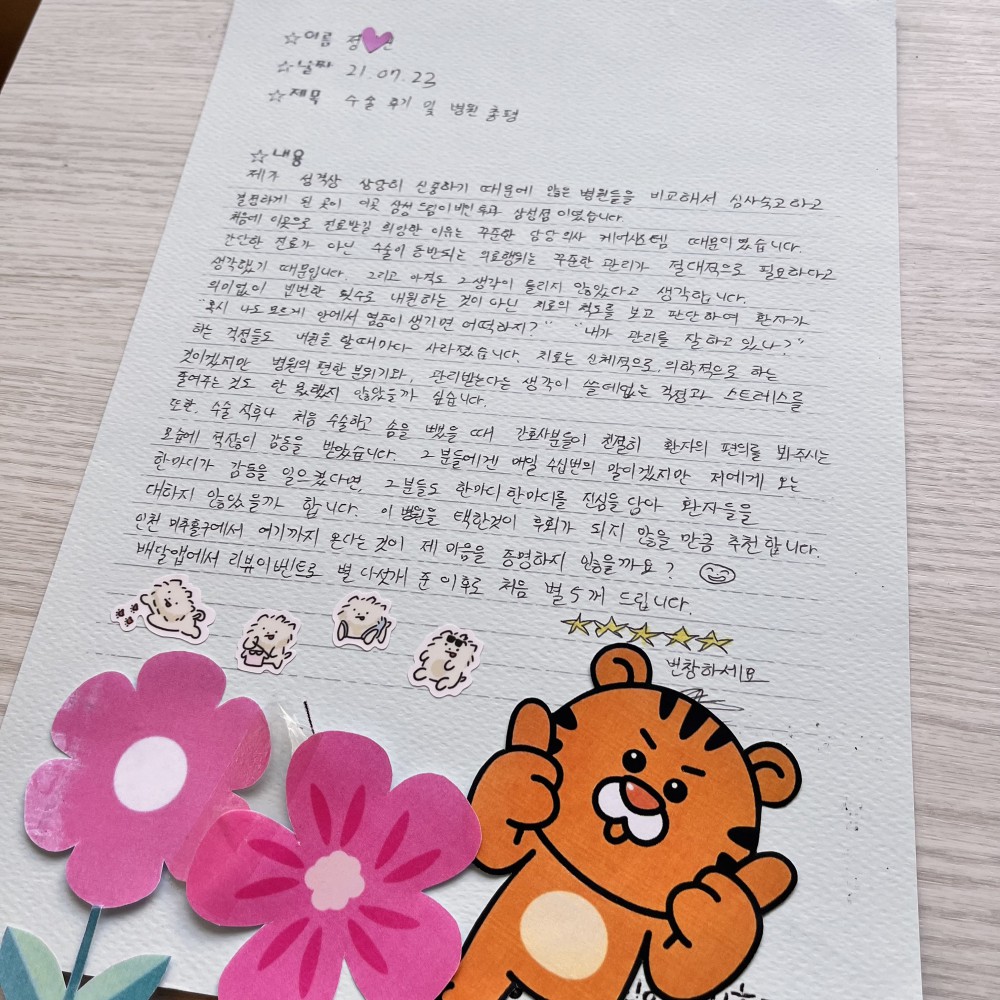 ☆이름 정
☆날짜 21.07.23
☆제목 수술 후기 및 병원 총평
☆내용
제가 성격상 상당히 신중하기 때문에 많은 병원들을 비교해서 심사숙고하고
결정하게 된 곳이 이곳 삼성드림이비인후과 삼성점이었습니다.
처음에 이곳으로 진료받길 희망한 이유는 꾸준한 담당의사 케어시스템 때문이였습니다.
간단한 진료가 아닌 수술이 동반되는 의료행위는 꾸준한 관리가 절대적으로 필요하다고
생각했기 때문입니다. 그리고 아직도 그 생각이 틀리지 않았다고 생각합니다.
의미없이 빈번한 횟수로 내원하는 것이 아닌 치료의 척도를 보고 판단하여 환자가
"혹시 나도 모르게 안에서 염증이 생기면 어떡하지?" "내가 관리를 잘 하고 있나?"
하는 걱정들도 내원을 할때마다 사라졌습니다. 치료는 신체적으로, 의학적으로 하는
것이겠지만 병원의 편한 분위기와, 관리받는다는 생각이 쓸데없는 걱정과 스트레스를
줄여주는 것도 한 몫했지 않았을까 싶습니다.
또한, 수술 직후나 처음 수술하고 솜을 뺐을 때 간호사분들이 친절히 환자의 편의를 봐주시는
모습에 적잖이 감동을 받았습니다. 그분들에겐 매일 수십번의 말이겠지만 저에게 오는
한마디가 감동을 일으켰다면, 그분들도 한마디 한마디를 진심을 담아 환자들을
대하지 않았을까 합니다. 이 병원을 택한것이 후회가 되지 않을 만큼 추천합니다.
인천 미추홀구에서 여기까지 온다는 것이 제 마음을 증명하지 않을까요?
배달앱에서 리뷰이벤트로 별 다섯개 준 이후로 처음 별 5개 드립니다.
번창하세요